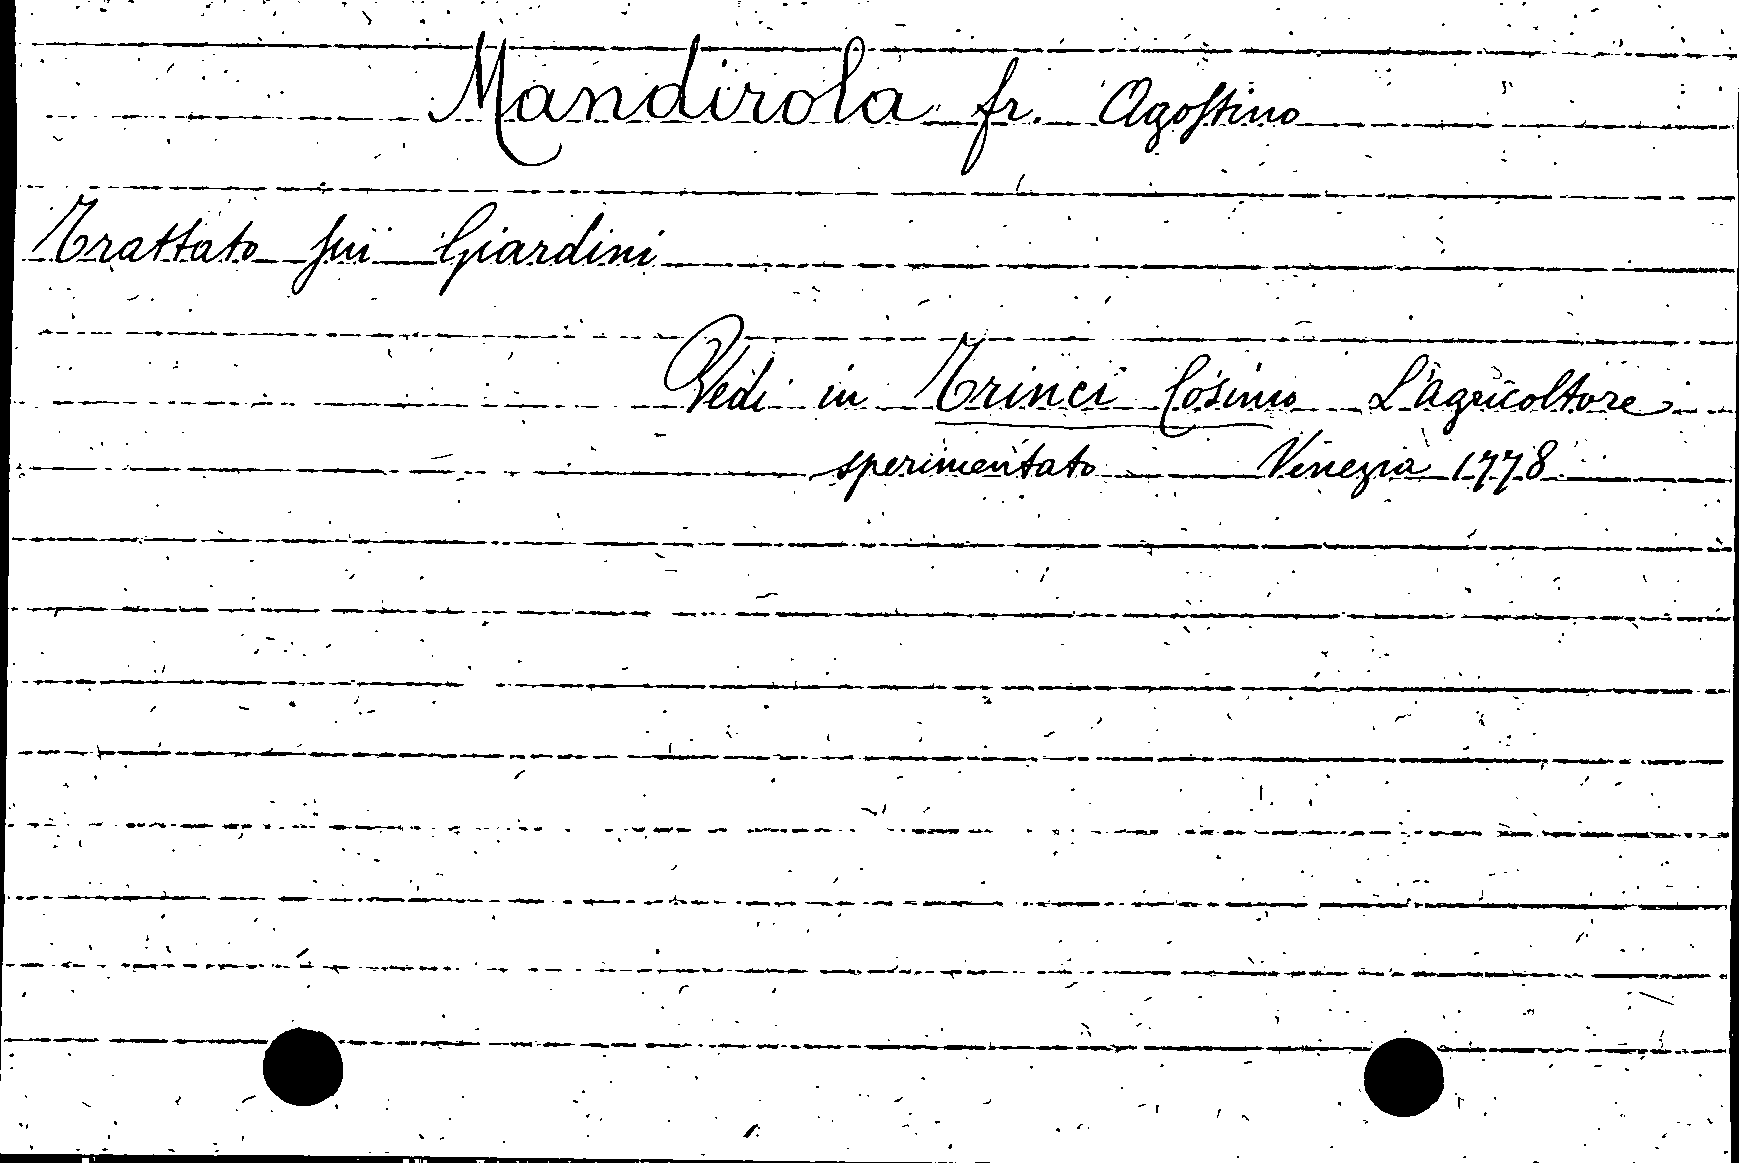 Mandirola fr. Agostino
Trattato sui Giardini
Vedi in Trinci Cosimo L'agricoltore
sperimentato Venezia 1778